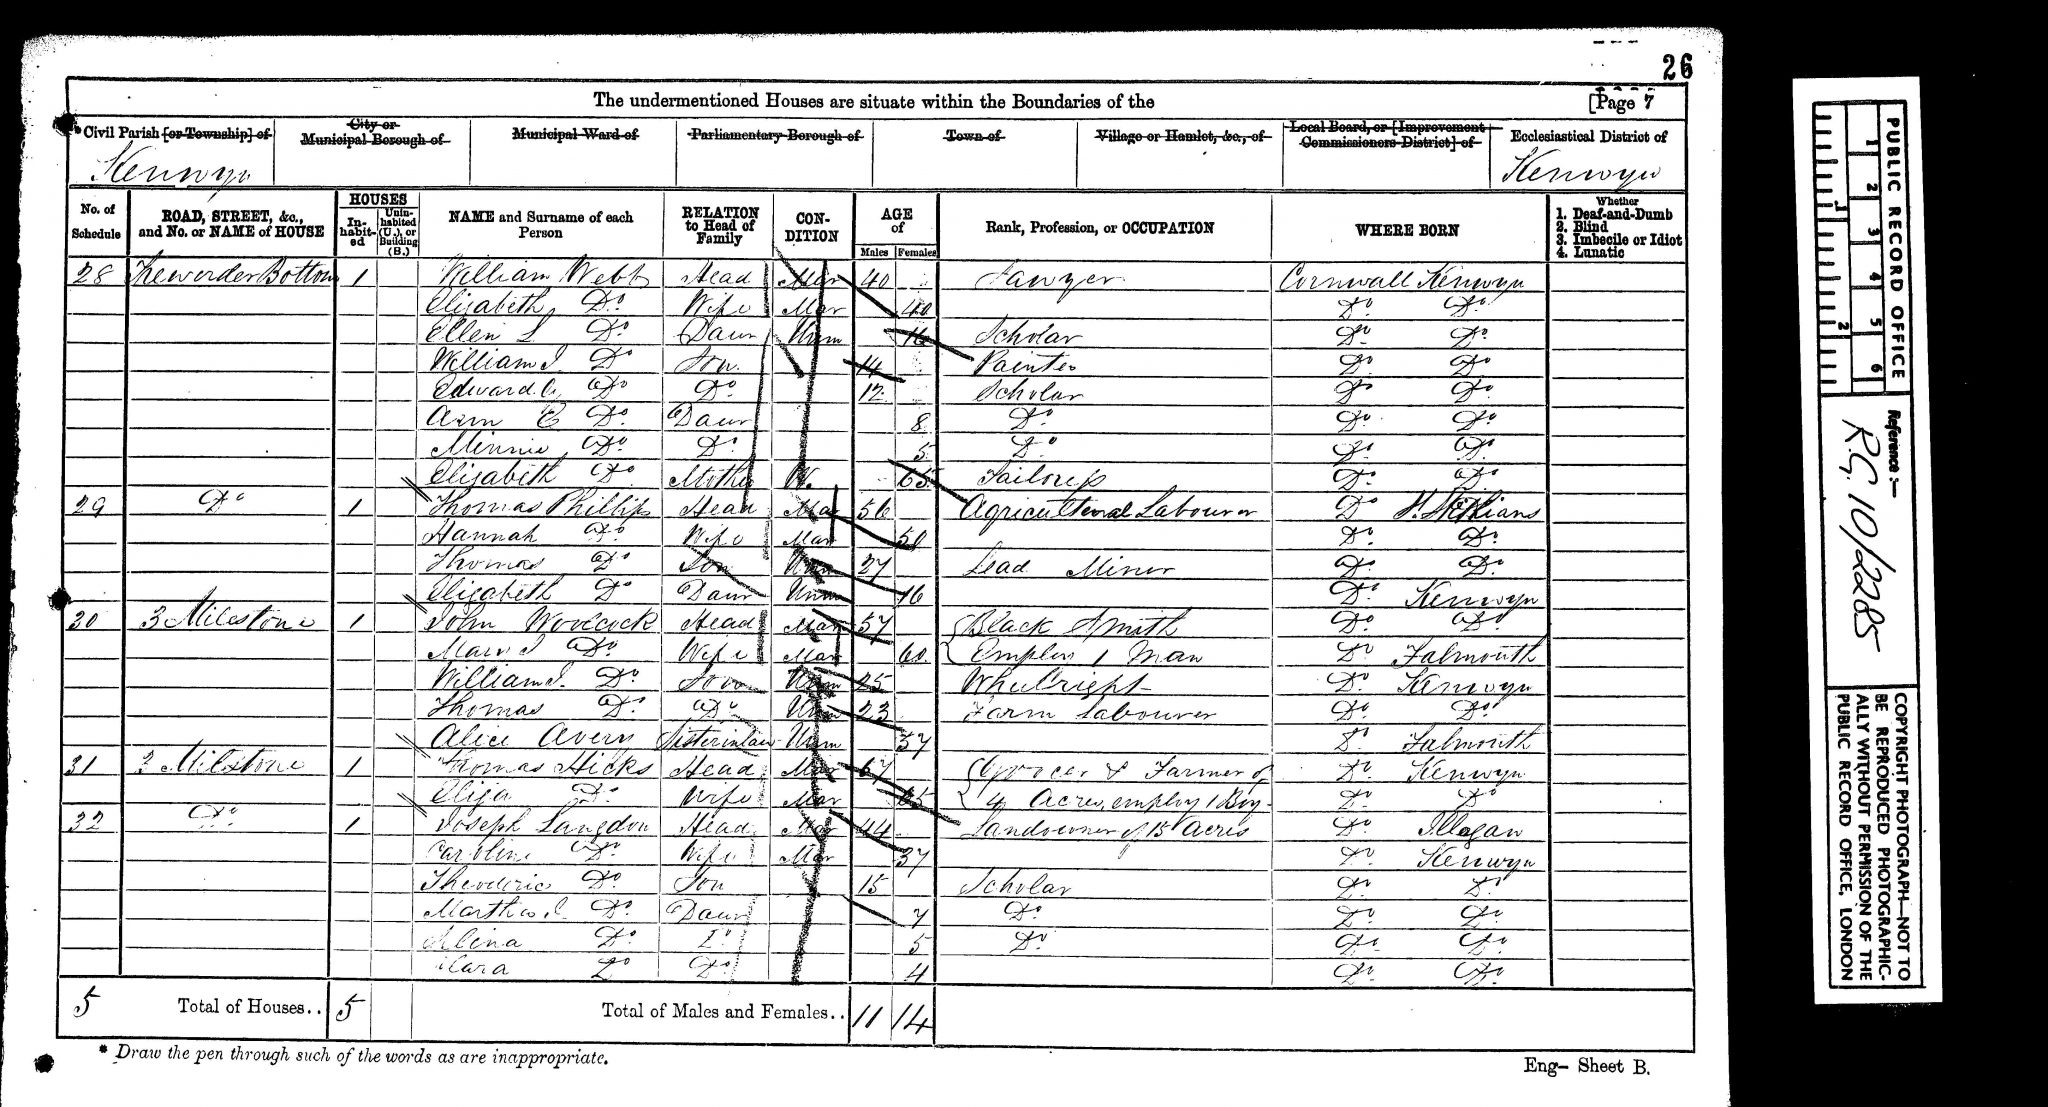 26
The undermentioned Houses are situate within the Boundaries of the [Page 7
Civil Parish [or Township] of City or Municipal Borough of Municipal Ward of Parliamentary Borough of Town of Village or Hamlet, &c., of Local Board, or [Improvement Commissioners District] of Ecclesiastical District of
Kenwyn Kenwyn
No. of Schedule ROAD, STREET, &c., and No. or NAME of HOUSE HOUSES In-habit-ed Unin-habited (U.), or Building (B.) NAME and Surname of each Person RELATION to Head of Family CON-DITION AGE of Males Females Rank, Profession, or OCCUPATION WHERE BORN Whether 1. Deaf-and-Dumb 2. Blind 3. Imbecile or Idiot 4. Lunatic
28 Bottom 1 William Webb Head Mar 40 Sawyer Cornwall Kenwyn
Elizabeth Do Wife Mar 40 Do Do
Ellen L Do Daur Unm 16 Scholar Do Do
William J. Do Son 14 Painter Do Do
Edward Do Do 12 Scholar Do Do
Ann E Do Daur 8 Do Do Do
Minnie Do Do 5 Do Do Do
Elizabeth Do Mother W. 65 Tailoress Do Do
29 Do 1 Thomas Phillips Head Mar 56 Agricultural Labourer Do St. Stithians
Hannah Do Wife Mar 50 Do Do
Thomas Do Son Unm 27 Lead Miner Do Do
Elizabeth Do Daur Unm 16 Do Kenwyn
30 3 Milestone 1 John Woolcock Head Mar 57 Black Smith Do Do
Mary J Do Wife Mar 60 Employ 1 Man Do Falmouth
William J. Do Son Unm 25 Whelright Do Kenwyn
Thomas Do Do Unm 23 Farm Labourer Do Do
Alice Avery Sister in law Unm 57 Do Falmouth
31 3 Milestone 1 Thomas Hicks Head Mar 67 Grocer & Farmer of Do Kenwyn
Eliza Do Wife Mar 65 4 Acres, employ 1 Boy Do Do
32 Do 1 Joseph Langdon Head Mar 44 Landowner of 15 Acres Do Illogan
Caroline Do Wife Mar 37 Do Kenwyn
Do Son 15 Scholar Do Do
Martha J. Do Daur 7 Do Do Do
Do Do 5 Do Do Do
Clara Do Do 4 Do Do
5 Total of Houses.. 5 Total of Males and Females.. 11 14
* Draw the pen through such of the words as are inappropriate.
Eng- Sheet B.
PUBLIC RECORD OFFICE
1 2 3 4 5 6
1 2
Reference :-
RG 10/2285
COPYRIGHT PHOTOGRAPH—NOT TO
BE REPRODUCED PHOTOGRAPHIC-
ALLY WITHOUT PERMISSION OF THE
PUBLIC RECORD OFFICE, LONDON